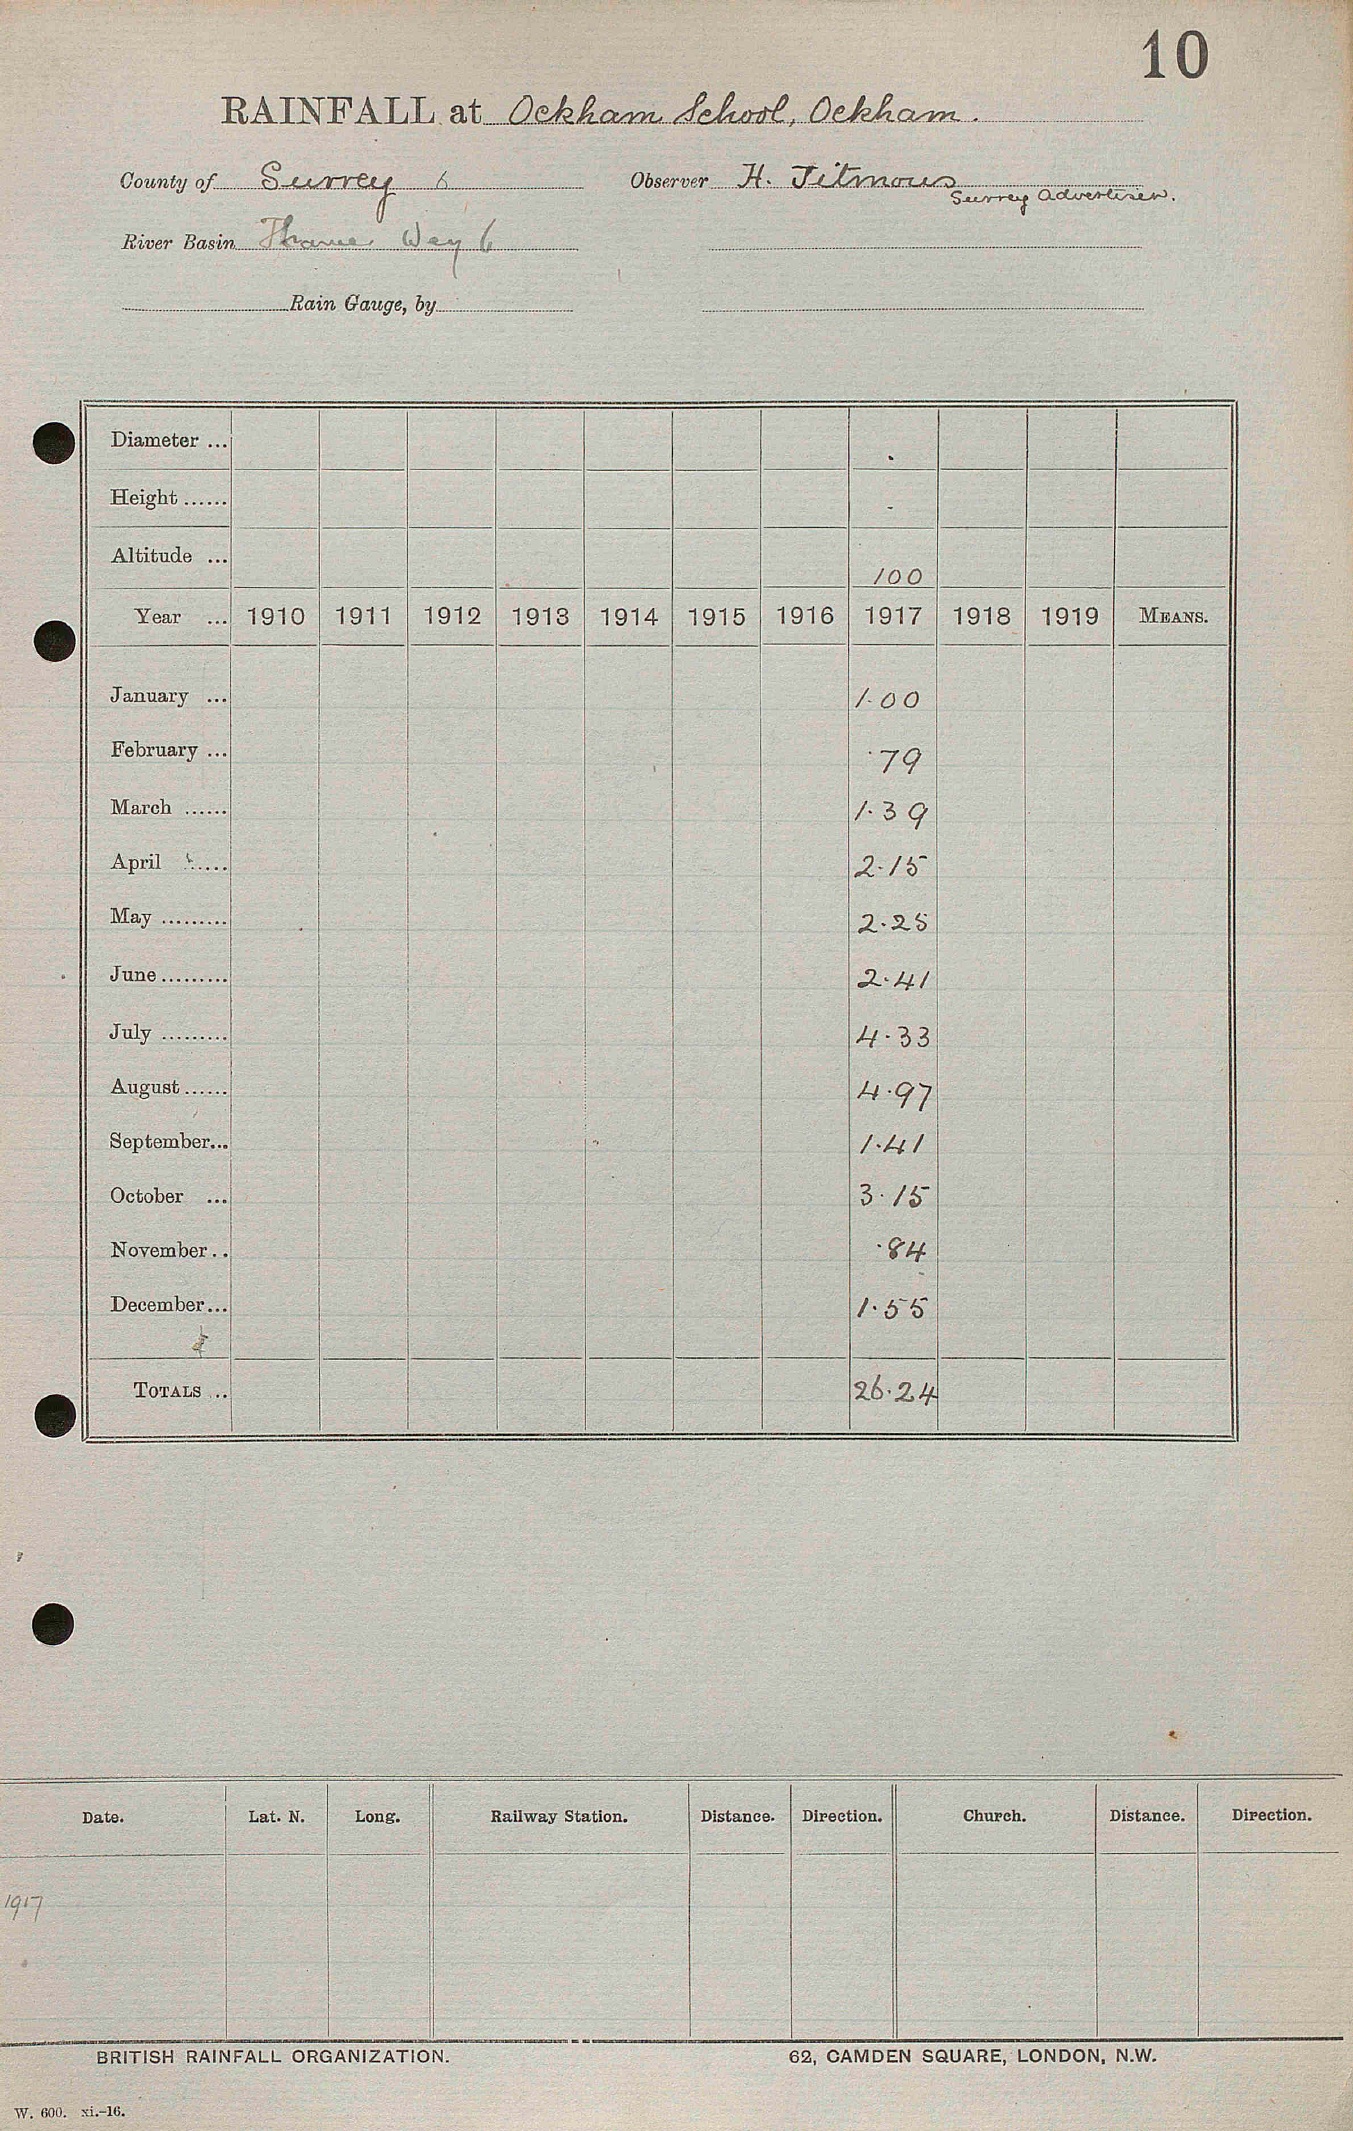 10
RAINFALL at Ockham School, Ockham.
County of Surrey 6 Observer H. Titmous
Surrey Advertiser.
River Basin Thames Wey 6
Rain Gauge, by
Diameter ...
Height ......
Altitude ... 100
Year ... 1910 1911 1912 1913 1914 1915 1916 1917 1918 1919 MEANS.
January ... 1.00
February ... .79
March ...... 1.39
April ...... 2.15
May ......... 2.25
June ......... 2.41
July ......... 4.33
August ...... 4.97
September... 1.41
October ... 3.15
November .. .84
December... 1.55
TOTALS ... 26.24
Date. Lat. N. Long. Railway Station. Distance. Direction. Church. Distance. Direction.
1917
BRITISH RAINFALL ORGANIZATION. 62, CAMDEN SQUARE, LONDON, N.W.
W. 600. xi.-16.